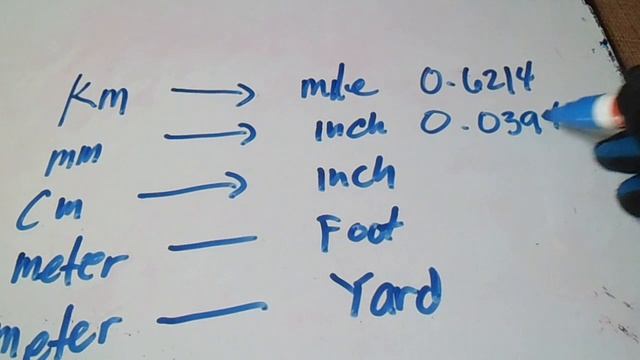 Km → mile 0.6214
mm → inch 0.0394
Cm → inch
meter — Foot
meter — Yard